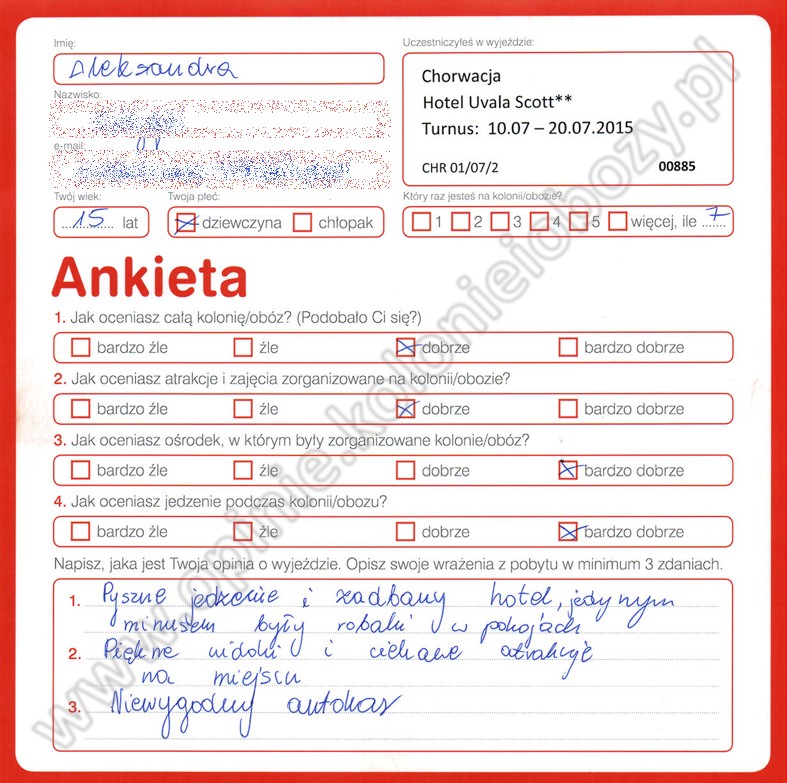 Imię:
Aleksandra
Nazwisko:
e-mail:
Twój wiek:
15 lat
Twoja płeć:
dziewczyna chłopak
Uczestniczyłeś w wyjeździe:
Chorwacja
Hotel Uvala Scott**
Turnus: 10.07 – 20.07.2015
CHR 01/07/2 00885
Który raz jesteś na kolonii/obozie?
1 2 3 4 5 więcej, ile 7
Ankieta
1. Jak oceniasz całą kolonię/obóz? (Podobało Ci się?)
bardzo źle źle dobrze bardzo dobrze
2. Jak oceniasz atrakcje i zajęcia zorganizowane na kolonii/obozie?
bardzo źle źle dobrze bardzo dobrze
3. Jak oceniasz ośrodek, w którym były zorganizowane kolonie/obóz?
bardzo źle źle dobrze bardzo dobrze
4. Jak oceniasz jedzenie podczas kolonii/obozu?
bardzo źle źle dobrze bardzo dobrze
Napisz, jaka jest Twoja opinia o wyjeździe. Opisz swoje wrażenia z pobytu w minimum 3 zdaniach.
1. Pyszne jedzenie i zadbany hotel, jedynym
minusem były robaki w pokojach
2. Piękne widoki i ciekawe atrakcje
na miejscu
3. Niewygodny autokar
www.opinie.kolonieiobozy.pl